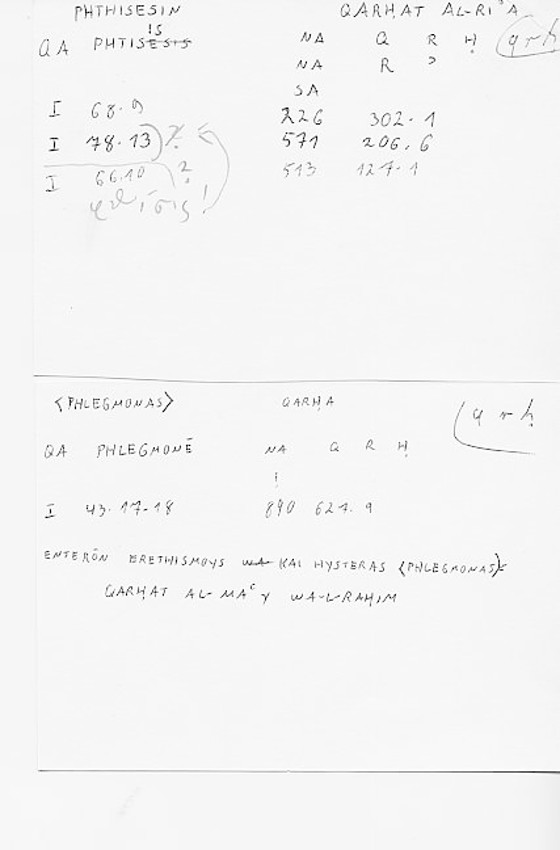 PHTHISESIN QARḤAT AL-RIʾA
IS
QA PHTISESIS NA Q R Ḥ (qrḥ
NA R ʾ
SA
I 68.9 226 302.1
I 78.13 571 206.6
I 66.10 ? 513 127.1
φθίσις!
<PHLEGMONAS> QARḤA (qrḥ
QA PHLEGMONĒ NA Q R Ḥ
!
I 43.17-18 890 627.9
ENTERŌN ERETHISMOYS WA KAI HYSTERAS <PHLEGMONAS>
QARḤAT AL-MAʿY WA-L-RAḤIM